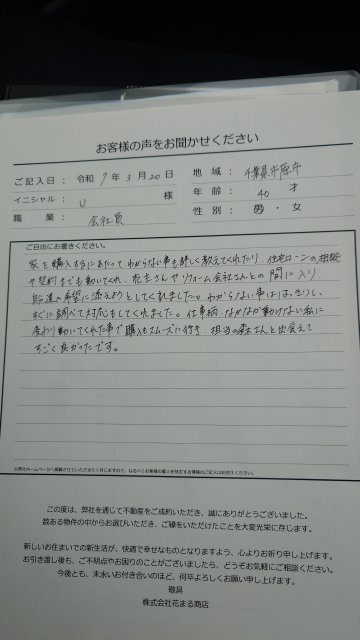 お客様の声をお聞かせください
ご記入日： 令和 7 年 3 月 20 日 地域： 千葉県市原市
イニシャル： U 様 年齢： 40 才
職業： 会社員 性別： 男・女
ご自由にお書きください。
家を購入するにあたって、わからない事も詳しく教えてくれたり、住宅ローンの相談
や契約までも動いてくれ、売主さんやリフォーム会社さんとの間に入り、
私達の希望に添えようとしてくれました。わからない事ははっきりし、
すぐに調べて対応もしてくれました。仕事柄、なかなか動けない私に
変わり動いてくれた事で購入もスムーズに行き、担当の森さんと出会えて
すごく良かったです。
※弊社ホームページへ掲載させていただきたく存じますので、なるべくお客様の個人を特定する情報のご記入はお控えください。
この度は、弊社を通じて不動産をご成約いただき、誠にありがとうございました。
数ある物件の中からお選びいただき、ご縁をいただけたことを大変光栄に存じます。
新しいお住まいでの新生活が、快適で幸せなものとなりますよう、心よりお祈り申し上げます。
お引き渡し後も、ご不明点やお困りのことがございましたら、どうぞお気軽にご相談ください。
今後とも、末永いお付き合いのほど、何卒よろしくお願い申し上げます。
敬具
株式会社花まる商店